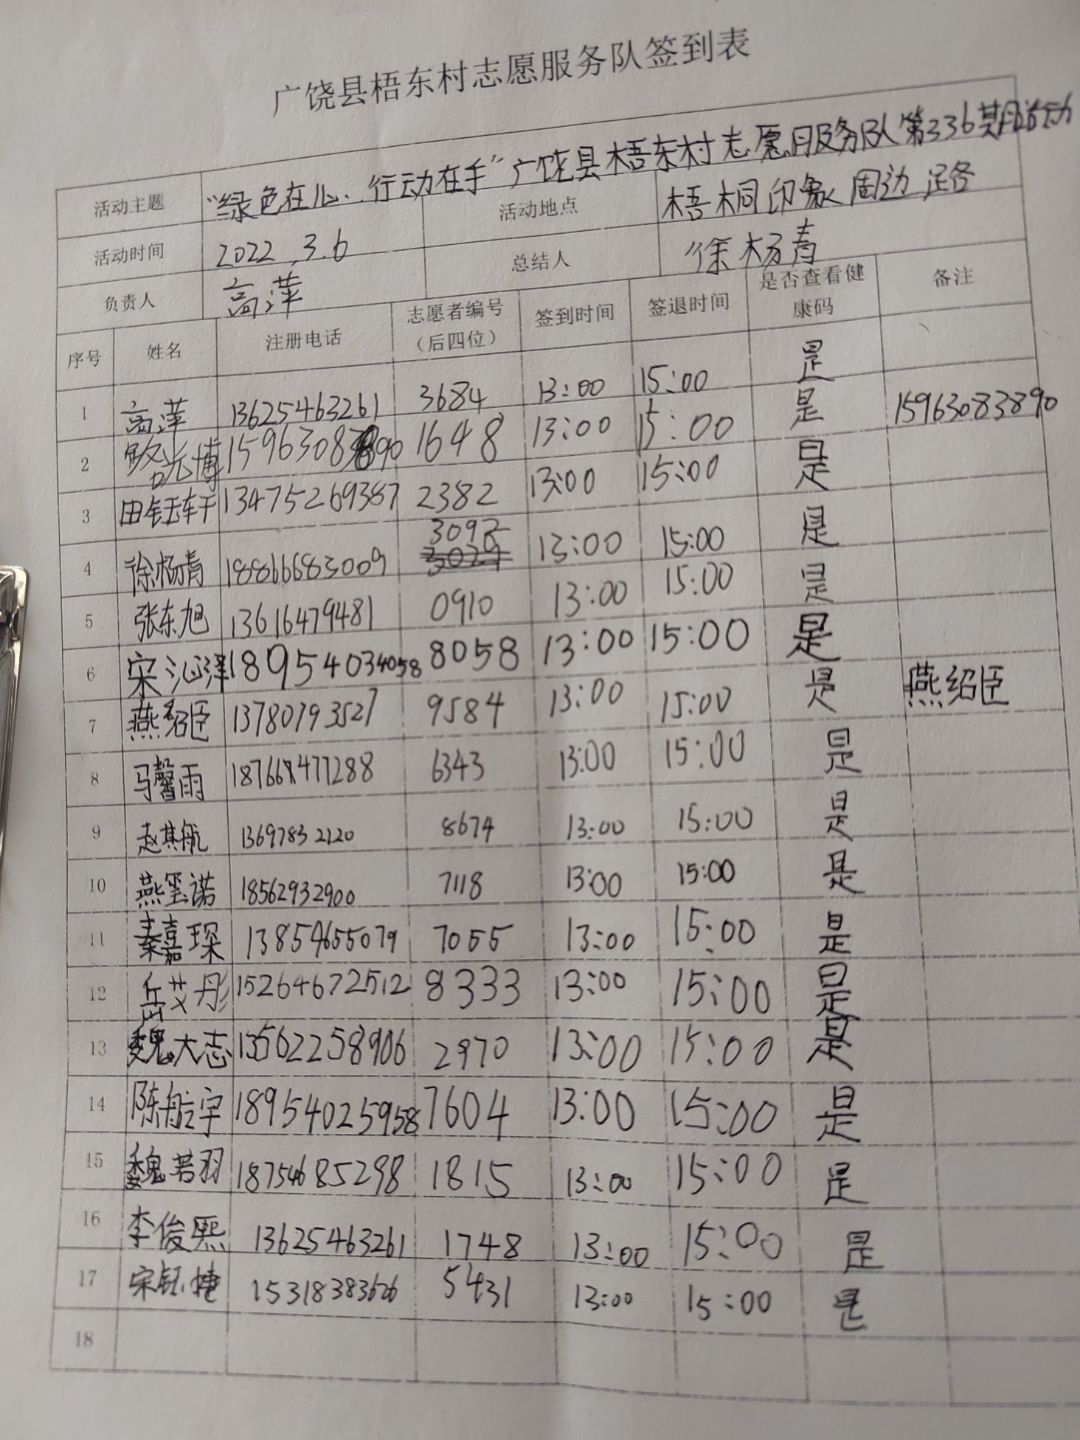 广饶县梧东村志愿服务队签到表
活动主题 “绿色在心、行动在手”广饶县梧东村志愿服务队第336期活动
活动时间 2022.3.6 活动地点 梧桐印象周边道路
负责人 高萍 总结人 徐杨青
序号 姓名 注册电话 志愿者编号（后四位） 签到时间 签退时间 是否查看健康码 备注
1 高萍 13625463261 3684 13:00 15:00 是
2 路光博 15963083890 1648 13:00 15:00 是 15963083890
3 田钰轩 13475269387 2382 13:00 15:00 是
4 徐杨青 18866683009 13:00 15:00 是
5 张东旭 13616479481 0910 13:00 15:00 是
6 宋沁泽 18954034058 8058 13:00 15:00 是
7 燕绍臣 13780793527 9584 13:00 15:00 是 燕绍臣
8 马馨雨 18766847288 6343 13:00 15:00 是
9 赵其航 13697832120 8674 13:00 15:00 是
10 燕玺诺 18562932900 7118 13:00 15:00 是
11 秦嘉琛 13854655079 7055 13:00 15:00 是
12 岳艾彤 15264672512 8333 13:00 15:00 是
13 魏大志 13562258906 2970 13:00 15:00 是
14 陈航宇 18954025958 7604 13:00 15:00 是
15 魏若羽 18754685298 1815 13:00 15:00 是
16 李俊熙 13625463261 1748 13:00 15:00 是
17 宋钰婕 15318383626 5431 13:00 15:00 是
18